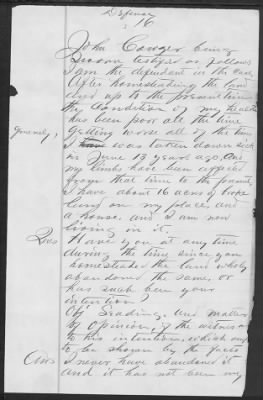 Defense
16.
John Cowger being
Sworn testifyed as follows
I am the defendant in this case
After homesteading the land
and up to the present time
the condition of my health
has been poor all the time
getting worse all of the time
I was taken down sick
in June 13 years ago, And
my limbs have been cripled
from that time to the present
I have about 16 acres of broke
land on my place, and
a house, and I am now
living in it.
Ques Have you at any time
during the time since you
homesteaded the land wholy
abandoned the same, or
has such been your
intention?
Obj leading, and matter
of opinion, of the witness as
to his intentions, which ought
to be shown by the facts
Ans I never have abandoned it
and it has not been my